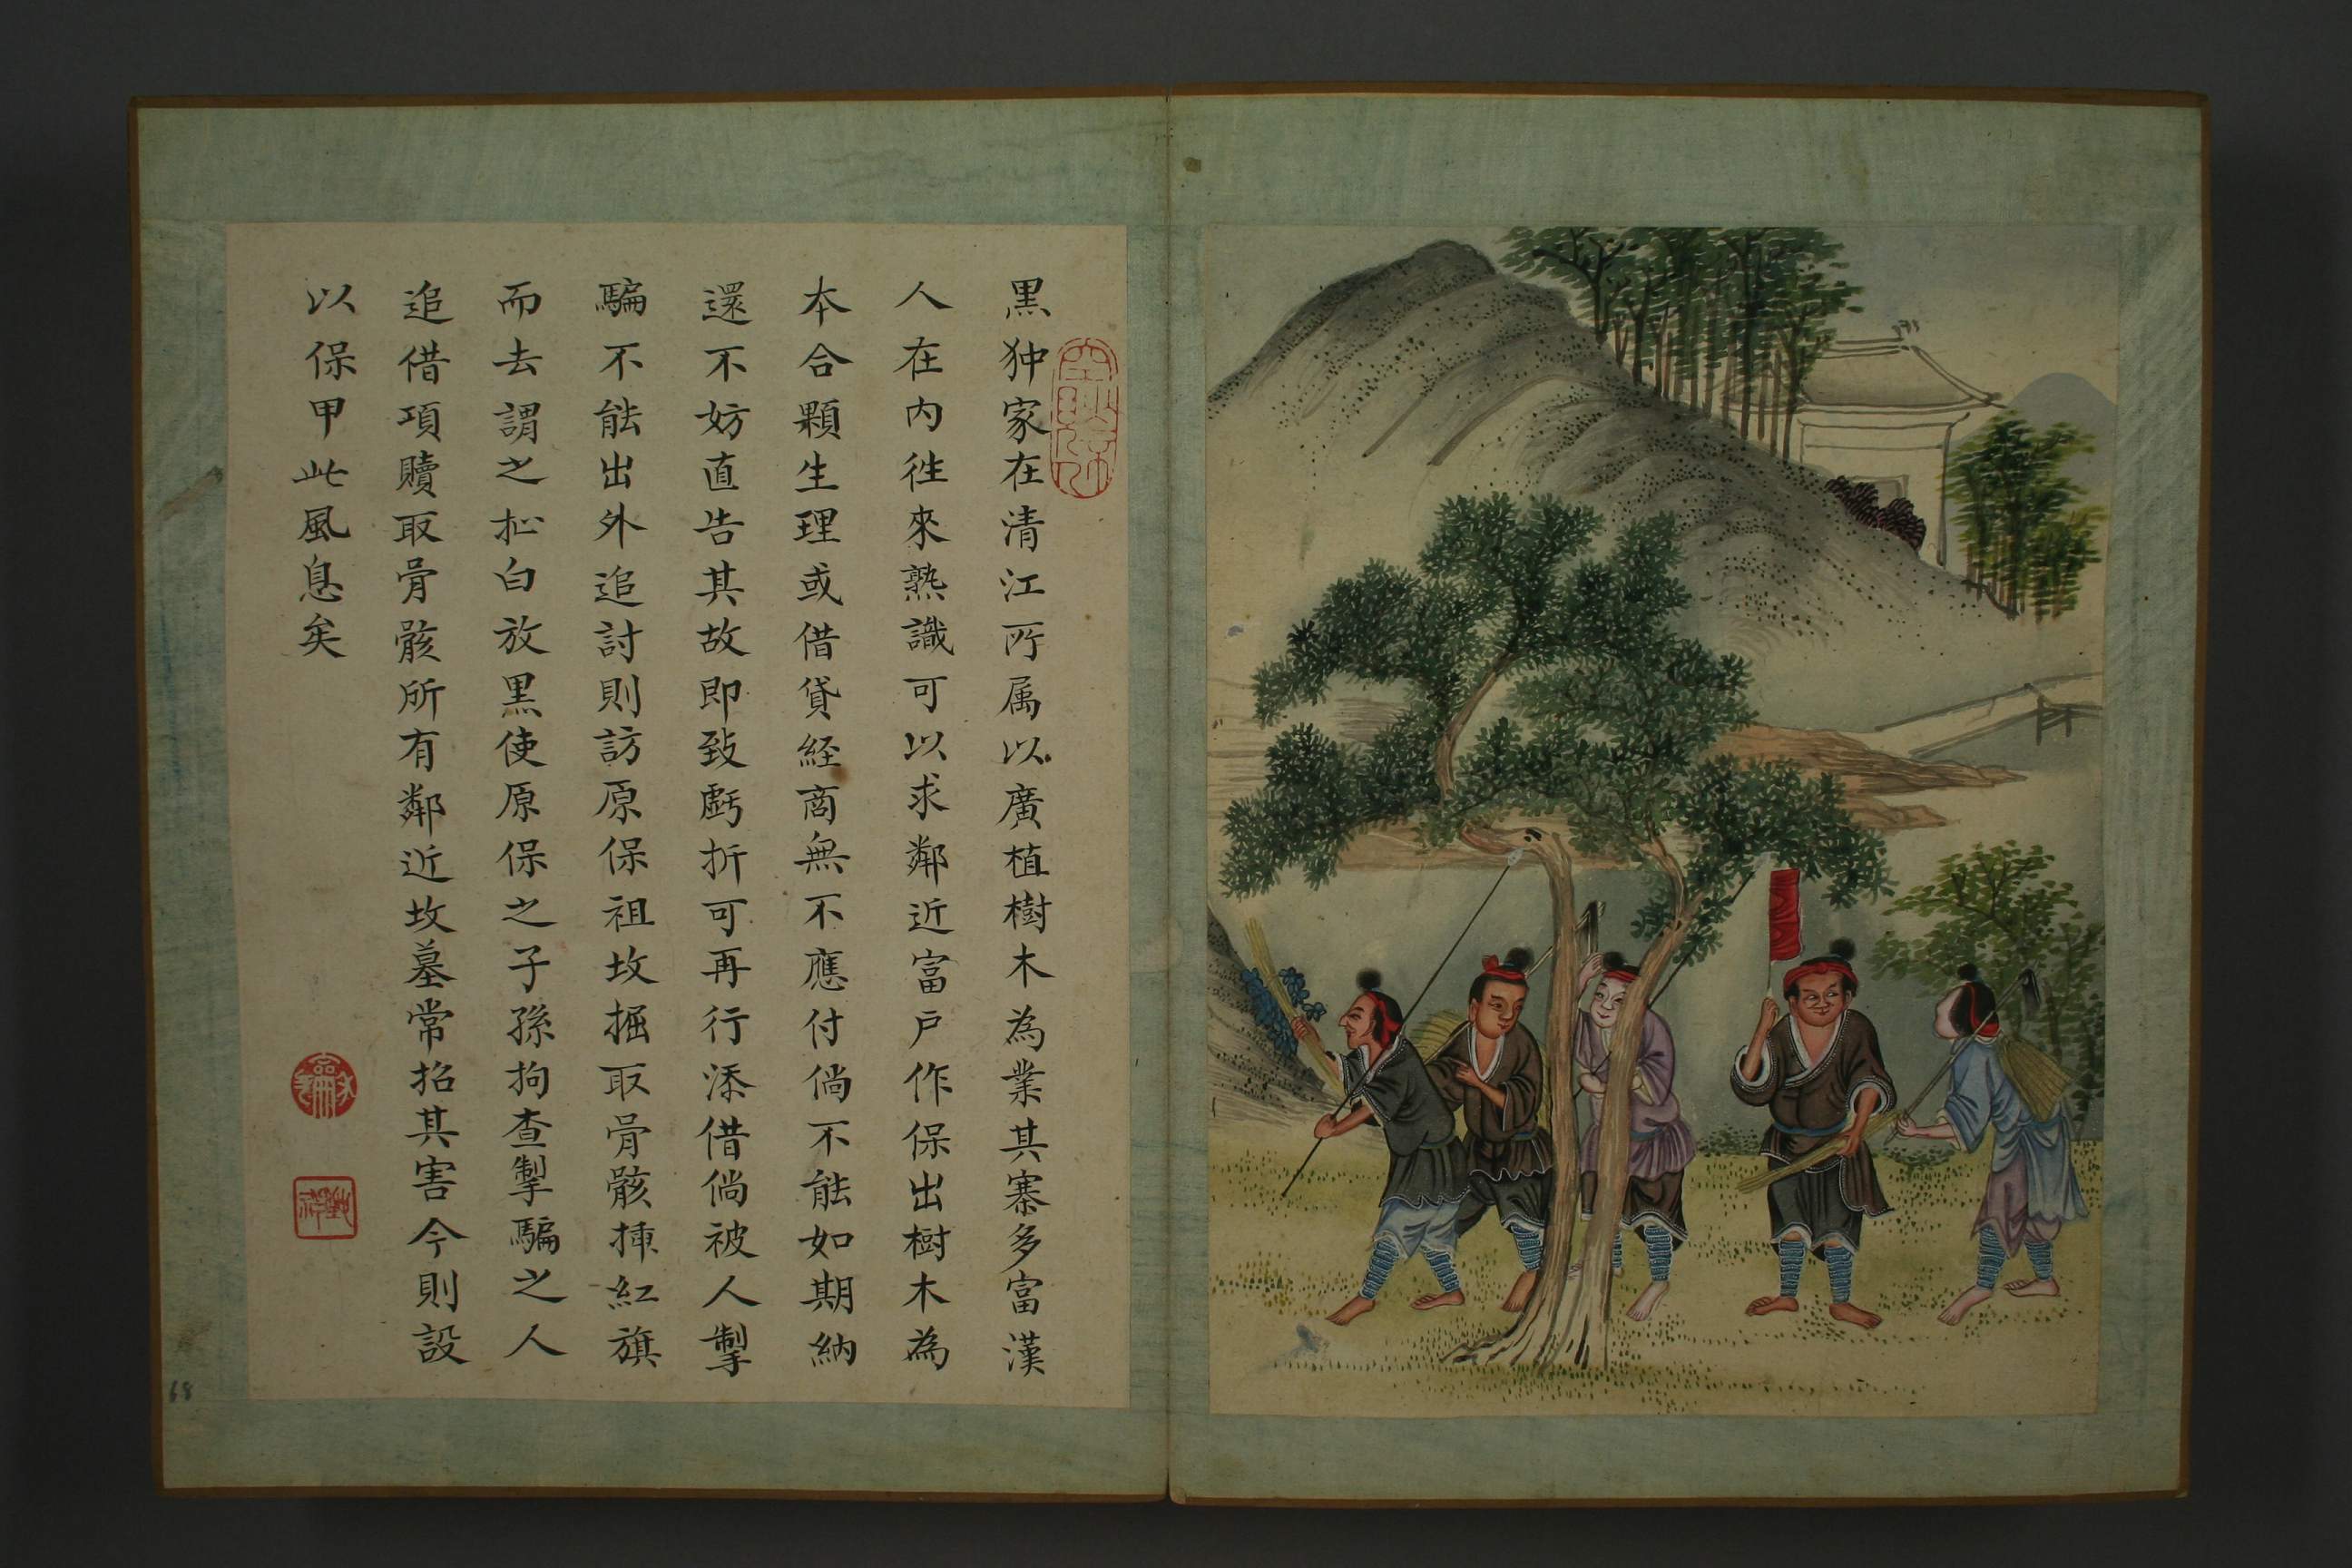 黑狆家在清江所属以廣植樹木為業其寨多富漢
人在内徃來熟識可以求鄰近富戶作保出樹木為
本合顆生理或借貸経商無不應付倘不能如期納
還不妨直告其故即致虧折可再行添借倘被人掣
騙不能出外追討則訪原保祖坟掘取骨骸揷紅旗
而去謂之扯白放黑使原保之子孫拘查掣騙之人
追借項贖取骨骸所有鄰近坟墓常招其害今則設
以保甲此風息矣
68